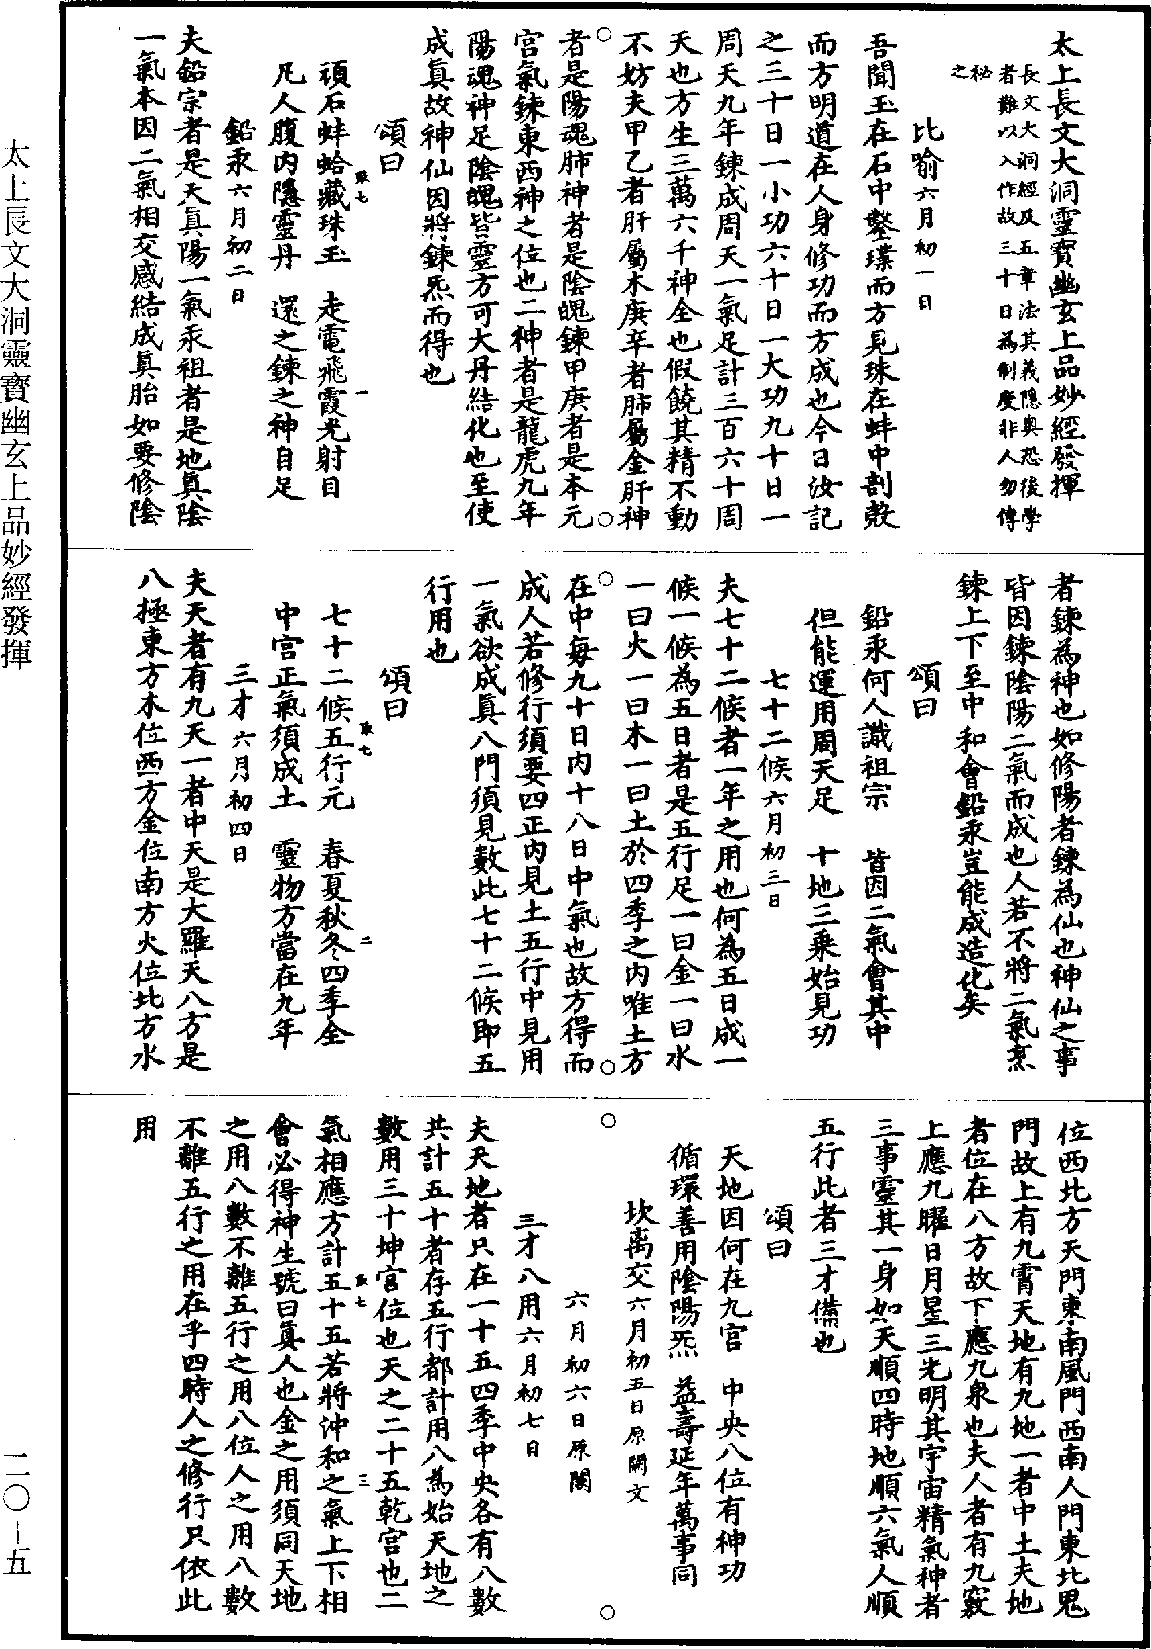 太上長文大洞靈寶幽玄上品妙經發揮
長文大洞經及五章法其義隱奥恐後學
者難以入作故三十日為制度非人勿傳
秘之
比喻六月初一日
吾聞玉在石中鑿璞而方見珠在蚌中剖殻
而方明道在人身修功而方成也今日汝記
之三十日一小功六十日一大功九十日一
周天九年鍊成周天一氣足計三百六十周
天也方生三萬六千神全也假饒其精不動
不妨夫甲乙者肝屬木庚辛者肺屬金肝神
者是陽魂肺神者是陰魄鍊甲庚者是本元
宮氣鍊東西神之位也二神者是龍虎九年
陽魂神足陰魄皆靈方可大丹結化也至使
成眞故神仙因將鍊炁而得也
頌曰
頑石蚌蛤藏珠玉　走電飛霞光射目
凡人腹內隱靈丹　還之鍊之神自足
鉛汞六月初二日
夫鉛宗者是天眞陽一氣汞祖者是地眞陰
一氣本因二氣相交感結成眞胎如要修陰
者鍊為神也如修陽者鍊為仙也神仙之事
皆因鍊陰陽二氣而成也人若不將二氣烹
鍊上下至中和會鉛汞豈能成造化矣
頌曰
鉛汞何人識祖宗　皆因二氣會其中
但能運用周天足　十地三乘始見功
七十二候六月初三日
夫七十二候者一年之用也何為五日成一
候一候為五日者是五行足一曰金一曰水
一曰火一曰木一曰土於四季之內唯土方
在中每九十日內十八日中氣也故方得而
成人若修行須要四正內見土五行中見用
一氣欲成眞八門須見數此七十二候即五
行用也
頌曰
七十二候五行元　春夏秋冬四季全
中宮正氣須成土　靈物方當在九年
三才六月初四日
夫天者有九天一者中天是大羅天八方是
八極東方木位西方金位南方火位北方水
位西北方天門東南風門西南人門東北鬼
門故上有九霄天地有九地一者中土夫地
者位在八方故下應九泉也夫人者有九竅
上應九曜日月星三光明其宇宙精氣神者
三事靈其一身如天順四時地順六氣人順
五行此者三才備也
頌曰
天地因何在九宮　中央八位有神功
循環善用陰陽炁　益壽延年萬事同
坎离交六月初五日原闕文
六月初六日原闕
三才八用六月初七日
夫天地者只在一十五四季中央各有八數
共計五十者存五行都計用八為始天地之
數用三十坤宮位也天之二十五乾宮也二
氣相應方計五十五若將沖和之氣上下相
會必得神生號曰眞人也金之用須同天地
之用八數不離五行之用八位人之用八數
不離五行之用在乎四時人之修行只依此
用
取七　一
取七　二
取七　三
太上長文大洞靈寶幽玄上品妙經發揮
二〇—五